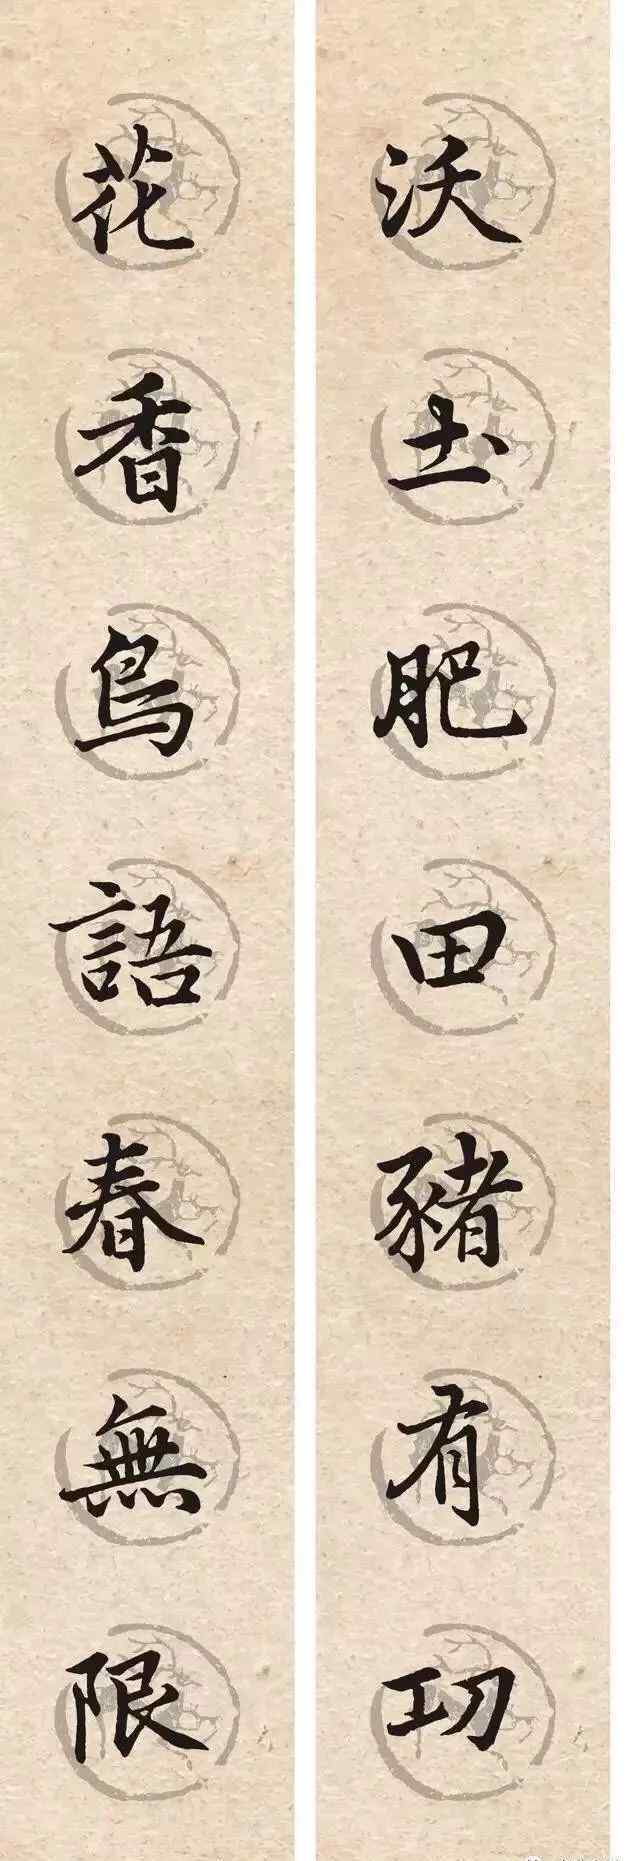 沃土肥田豬有功
花香鳥語春無限